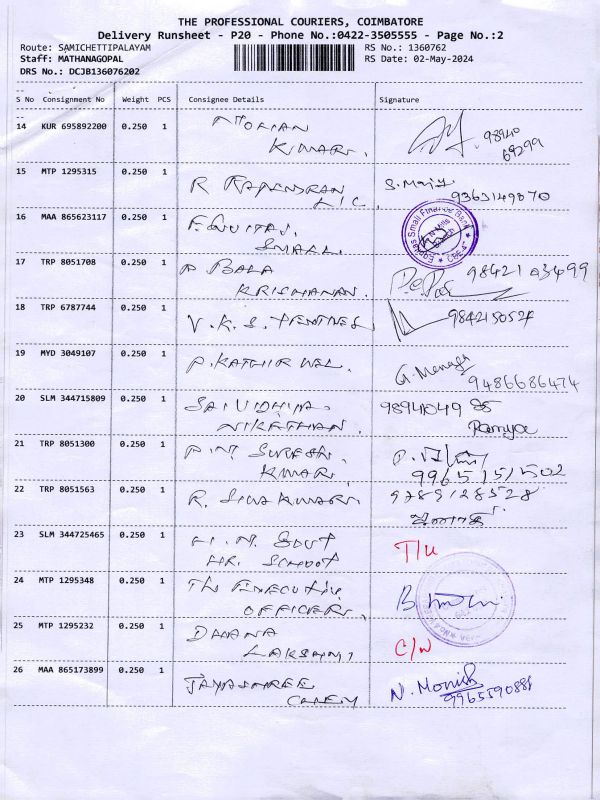 THE PROFESSIONAL COURIERS, COIMBATORE
Delivery Runsheet - P20 - Phone No.:0422-3505555 - Page No.:2
Route: SAMICHETTIPALAYAM RS No.: 1360762
Staff: MATHANAGOPAL RS Date: 02-May-2024
DRS No.: DCJB136076202
S No Consignment No Weight PCS Consignee Details Signature
14 KUR 695892200 0.250 1 KUMAR. 98940 69299
15 MTP 1295315 0.250 1 R RAJENDRAN LIC. 9363149870
16 MAA 865623117 0.250 1 SMALL. Equitas Small Finance Bank
17 TRP 8051708 0.250 1 P BALA KRISHANAN. 98421 03499
18 TRP 6787744 0.250 1 V.K.S. 9842150527
19 MYD 3049107 0.250 1 P. KATHIRVEL. G. Menaga 9486686474
20 SLM 344715809 0.250 1 SAI VIDHYA NIKETHAN. 98941049 85 Ramya
21 TRP 8051300 0.250 1 SURESH KUMAR. 9965151502
22 TRP 8051563 0.250 1 R. SIVAKUMAR. 9789128528
23 SLM 344725465 0.250 1 GOVT HR. SCHOOL
24 MTP 1295348 0.250 1 THE EXECUTIVE OFFICER.
25 MTP 1295232 0.250 1 DHANA LAKSHMI
26 MAA 865173899 0.250 1 JAYASHREE N. Monish